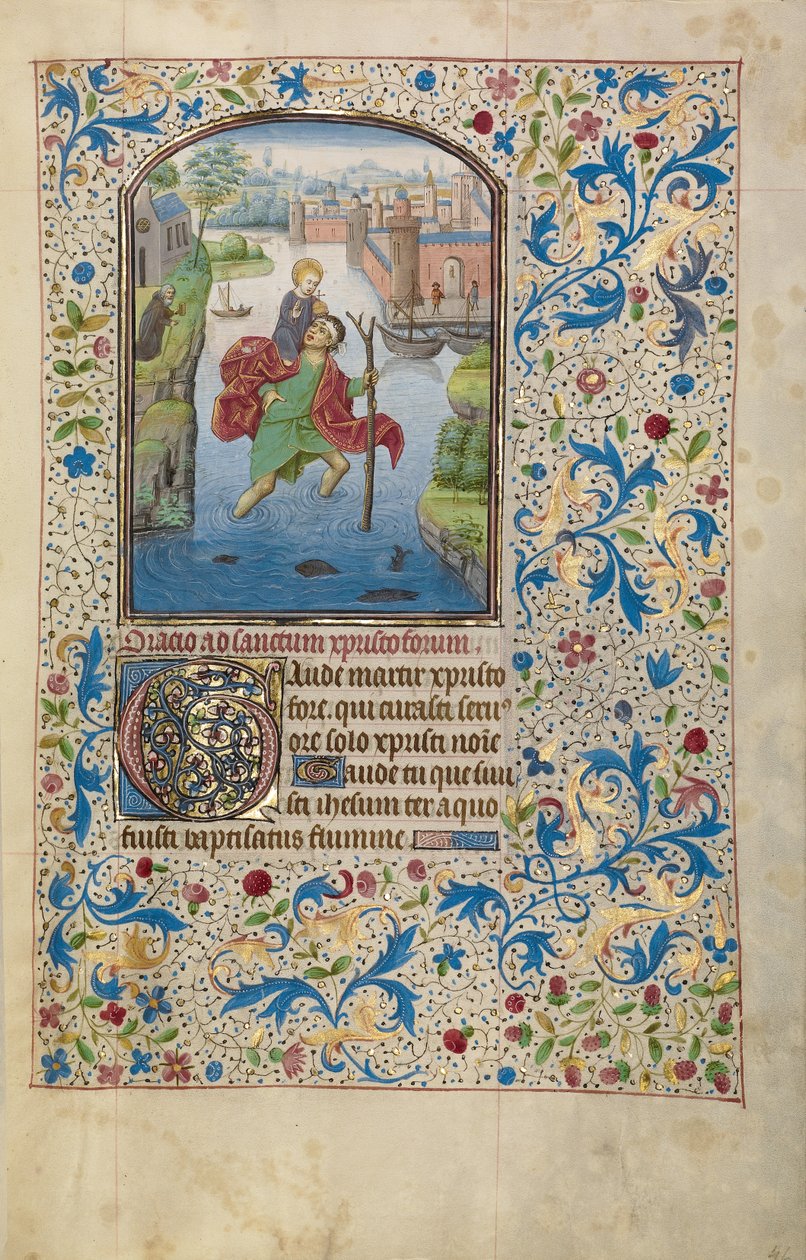 Oracio ad sanctum xpristoforum.
Gaude martir xpristo
fore. qui curasti seruiꝰ
ore solo xpristi noīe
Gaude tu que suui
sti ihesum ter a quo
fuisti baptisatus flumine